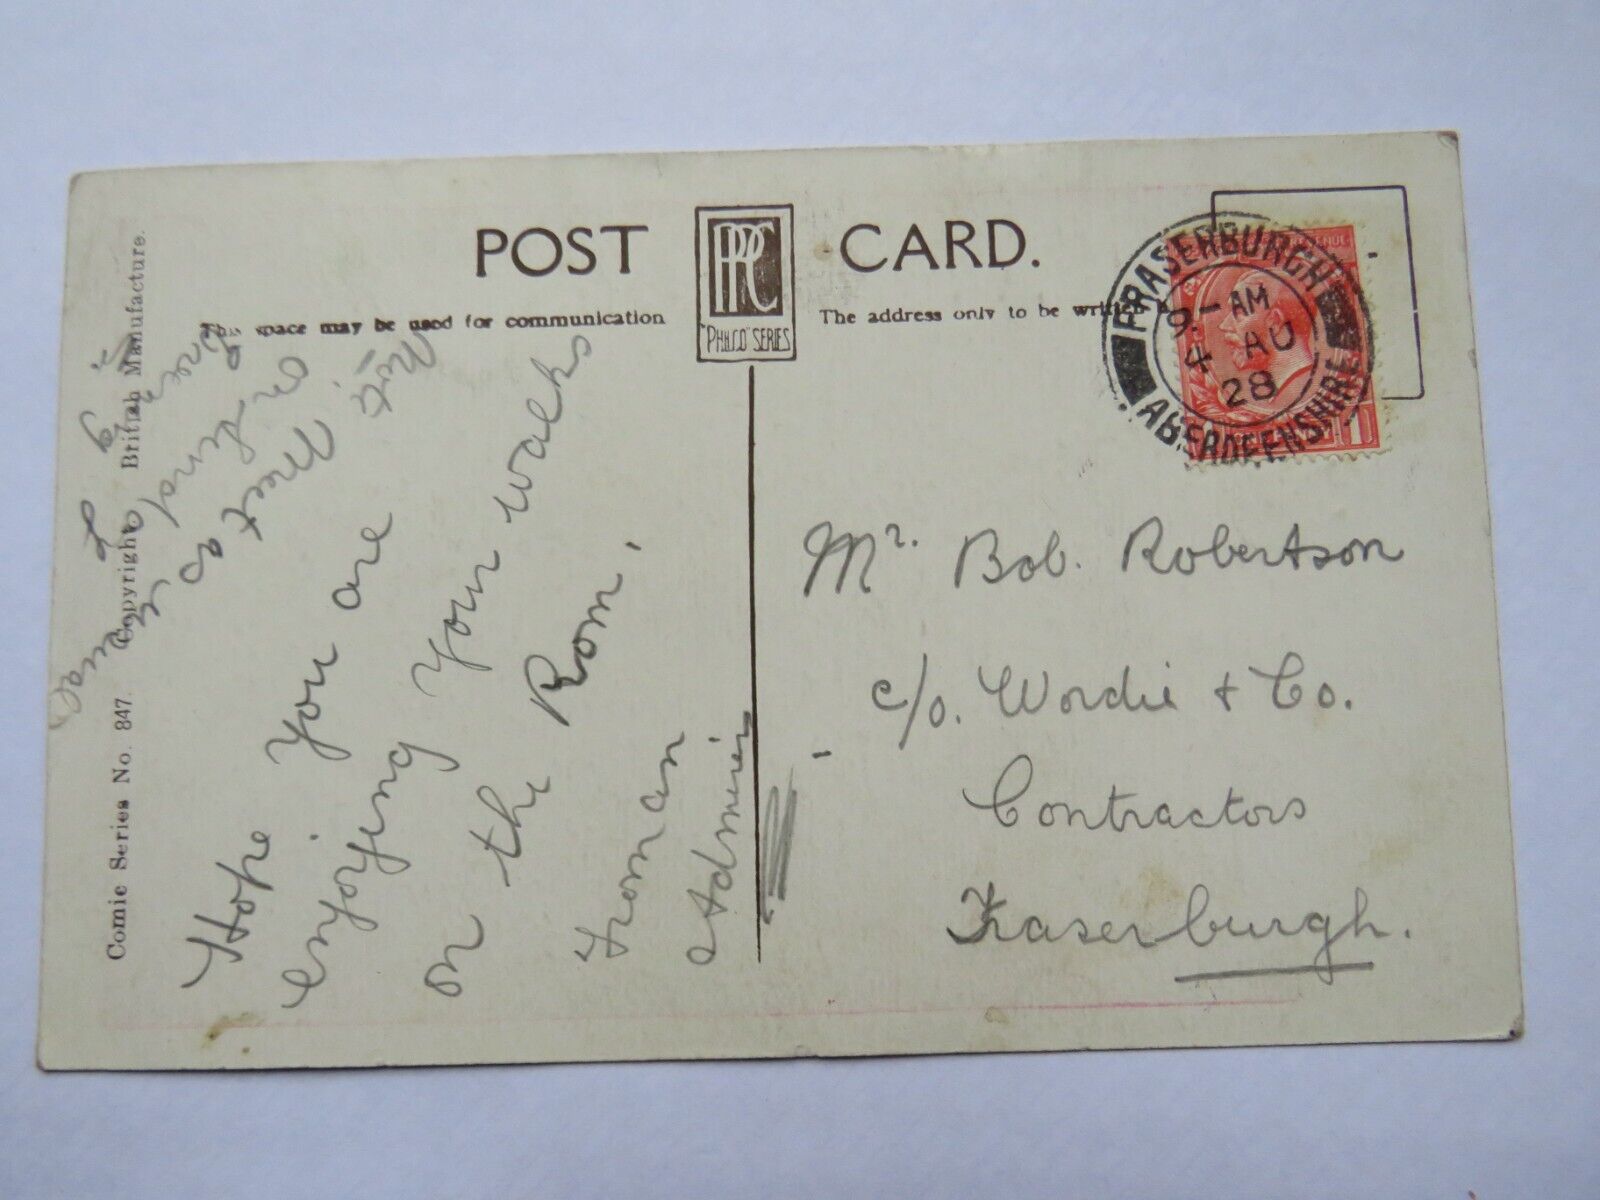 POST CARD.
PPC
"PHILCO" SERIES
This space may be used for communication
The address only to be written
Comic Series No. 847. Copyright. British Manufacture.
FRASERBURGH
9 - AM
4 AU
28
ABERDEENSHIRE
Mr. Bob. Robertson
c/o. Wordie & Co.
Contractors
Fraserburgh.
Hope you are
enjoying your walks
on the Room.
From an
Admirer